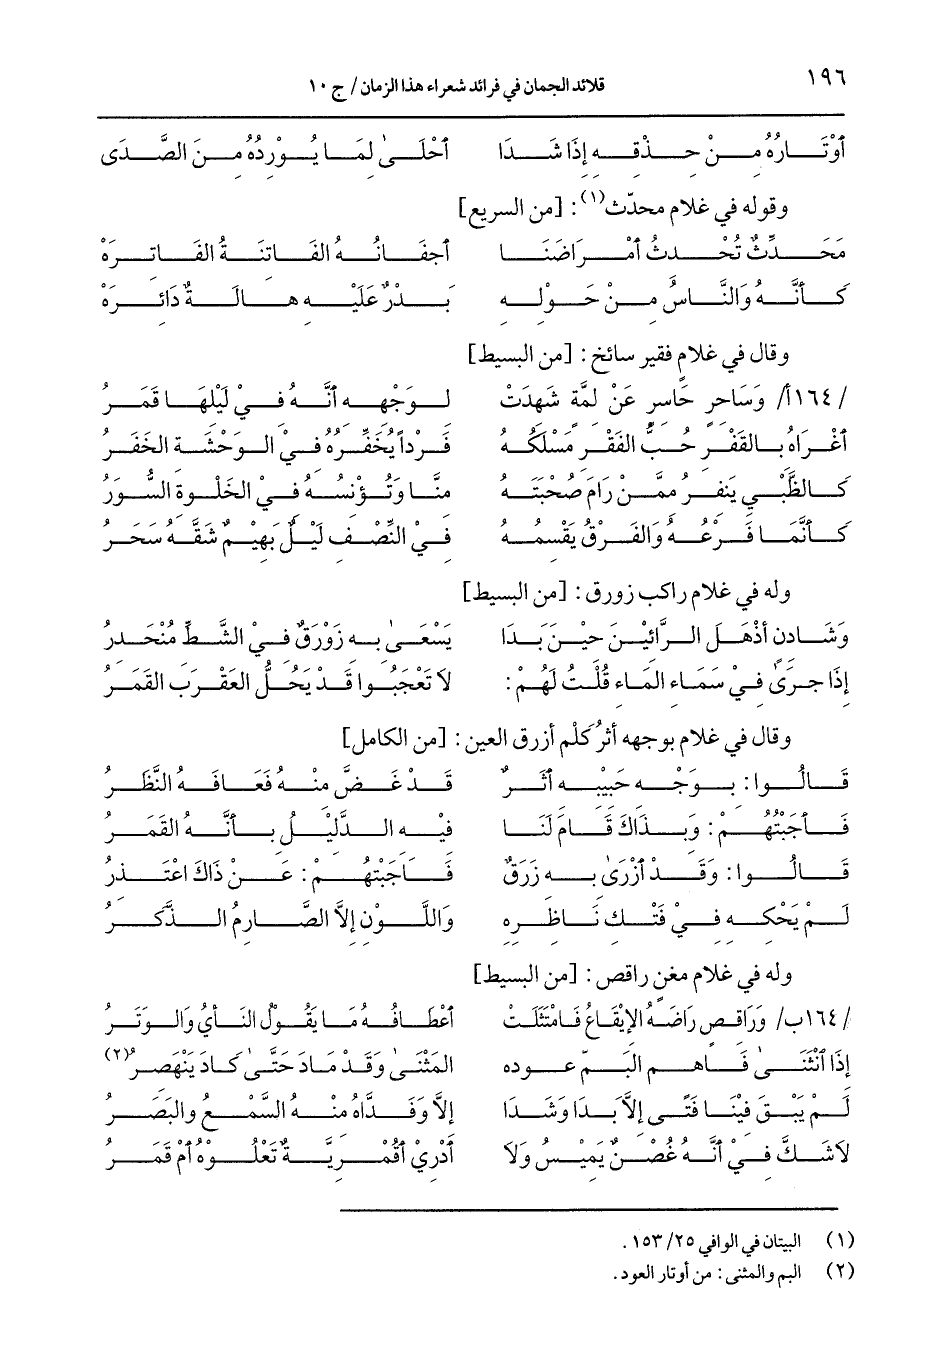 ١٩٦
قلائد الجمان في فرائد شعراء هذا الزمان / ج ١٠
أَوْتَارُهُ مِنْ حِذْقِهِ إِذَا شَدَا أَحْلَى لَمَا يُوْرِدُهُ مِنَ الصَّدَى
وقوله في غلام محدّث(١): [من السريع]
مُحَدِّثٌ تُحْدِثُ أَمْرَاضَنَا أَجفَانُهُ الفَاتِنَةُ الفَاتِرَهْ
كَأَنَّهُ وَالنَّاسُ مِنْ حَوْلِهِ بَدْرٌ عَلَيْهِ هَالَةٌ دَائِرَهْ
وقال في غلام فقير سائح: [من البسيط]
/١٦٤أ/ وَسَاحِرٍ حَاسِرٍ عَنْ لِمَّةٍ شَهِدَتْ لِوَجْهِهِ أَنَّهُ فِي لَيْلِهَا قَمَرُ
أَغْرَاهُ بِالقَفْرِ حُبُّ الفَقْرِ مَسْلَكُهُ فَرْداً يُخَفِّرُهُ فِيْ الوَحْشَةِ الخَفَرُ
كَالظَّبْيِ يَنفِرُ مِمَّنْ رَامَ صُحبَتَهُ مِنَّا وَتُؤْنِسُهُ فِيْ الخَلْوةِ السُّوَرُ
كَأَنَّمَا فَرْعُهُ وَالفَرْقُ يَقْسِمُهُ فِيْ النِّصْفِ لَيْلٌ بَهِيْمٌ شَقَّهُ سَحَرُ
وله في غلام راكب زورق: [من البسيط]
وَشَادِنٍ أَذْهَلَ الرَّائِيْنَ حِيْنَ بَدَا يَسْعَى بِهِ زَوْرَقٌ فِيْ الشَّطِّ مُنْحَدِرُ
إِذَا جَرَىٰ فِيْ سَمَاءِ المَاءِ قُلْتُ لَهُمْ: لَا تَعْجَبُوا قَدْ يَحُلُّ العَقْرَبَ القَمَرُ
وقال في غلام بوجهه أثرُ كَلْمٍ أزرق العين: [من الكامل]
قَالُوا: بِوَجْهِ حَبِيْبِهِ أَثَرٌ قَدْ غَضَّ مِنْهُ فَعَافَهُ النَّظَرُ
فَأَجَبْتُهُمْ: وَبِذَاكَ قَامَ لَنَا فِيْهِ الدَّلِيْلُ بِأَنَّهُ القَمَرُ
قَالُوا: وَقَدْ أَزْرَى بِهِ زَرَقٌ فَأَجَبْتُهُمْ: عَنْ ذَاكَ اعْتَذِرُ
لَمْ يَحْكِهِ فِيْ فَتْكِ نَاظِرِهِ وَاللَّوْنِ إِلاَّ الصَّارِمُ الذَّكَرُ
وله في غلام مغنٍ راقص: [من البسيط]
/١٦٤ب/ وَرَاقِصٍ رَاضَهُ الإِيْقَاعُ فَامْتَثَلَتْ أَعْطَافُهُ مَا يَقُوْلُ النَّأيُ وَالوَتَرُ
إِذَا انْثَنَى فَاهِمٌ البَمِّ عودِهِ المَثْنَى وَقَدْ مَادَ حَتَّى كَادَ يَنْهَصِرُ(٢)
لَمْ يَبْقَ فِيْنَا فَتًى إِلاَّ بَدَا وَشَدَا إِلاَّ وَفَدَّاهُ مِنْهُ السَّمْعُ والبَصَرُ
لاشَكَّ فِيْ أَنَّهُ غُصْنٌ يَمِيْسُ وَلاَ أَدْرِي أَقُمْرِيَّةٌ تَعْلُوهُ أم قَمَرُ
(١) البيتان في الوافي ٢٥/ ١٥٣.
(٢) البم والمثنى: من أوتار العود.